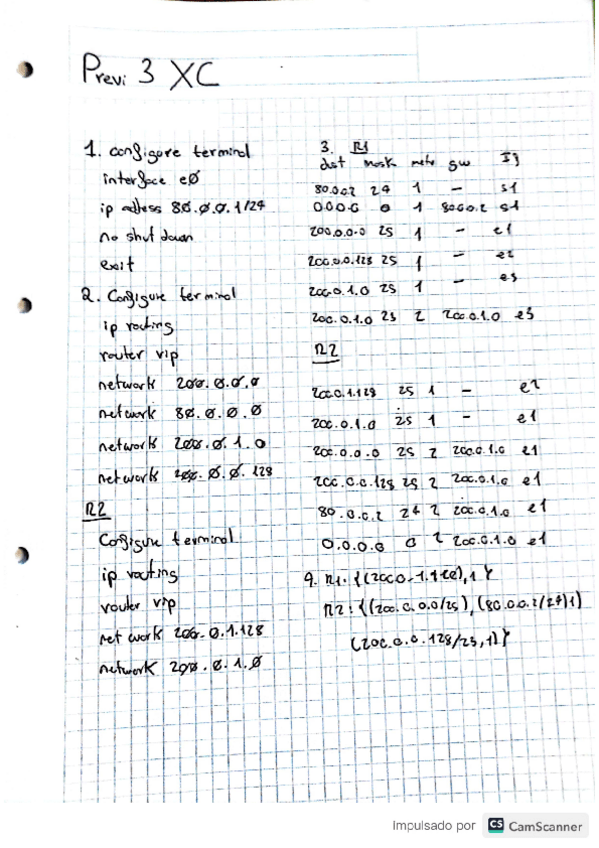 Previ 3 XC
1. configure terminal
interface e0
ip adless 80.0.0.1/24
no shut down
exit
2. Configure terminal
ip routing
router vip
network 200.0.0.0
network 80.0.0.0
network 200.0.1.0
network 200.0.0.128
R2
Cofigure terminal
ip routing
router vip
net work 200.0.1.128
network 200.0.1.0
3. R1
dst mask metr gw If
80.0.0.2 24 1 - s1
0.0.0.0 0 1 80.0.0.2 s1
200.0.0.0 25 1 - e1
200.0.0.128 25 1 - e2
200.0.1.0 25 1 - e3
200.0.1.0 25 2 200.0.1.0 e3
R2
200.0.1.128 25 1 - e2
200.0.1.0 25 1 - e1
200.0.0.0 25 2 200.0.1.0 e1
200.0.0.128 25 2 200.0.1.0 e1
80.0.0.2 24 2 200.0.1.0 e1
0.0.0.0 0 2 200.0.1.0 e1
4. R1: ,1}
R2: {(200.0.0.0/25), (80.0.0.2/24)1)
(200.0.0.128/25,1)}
Impulsado por CS CamScanner